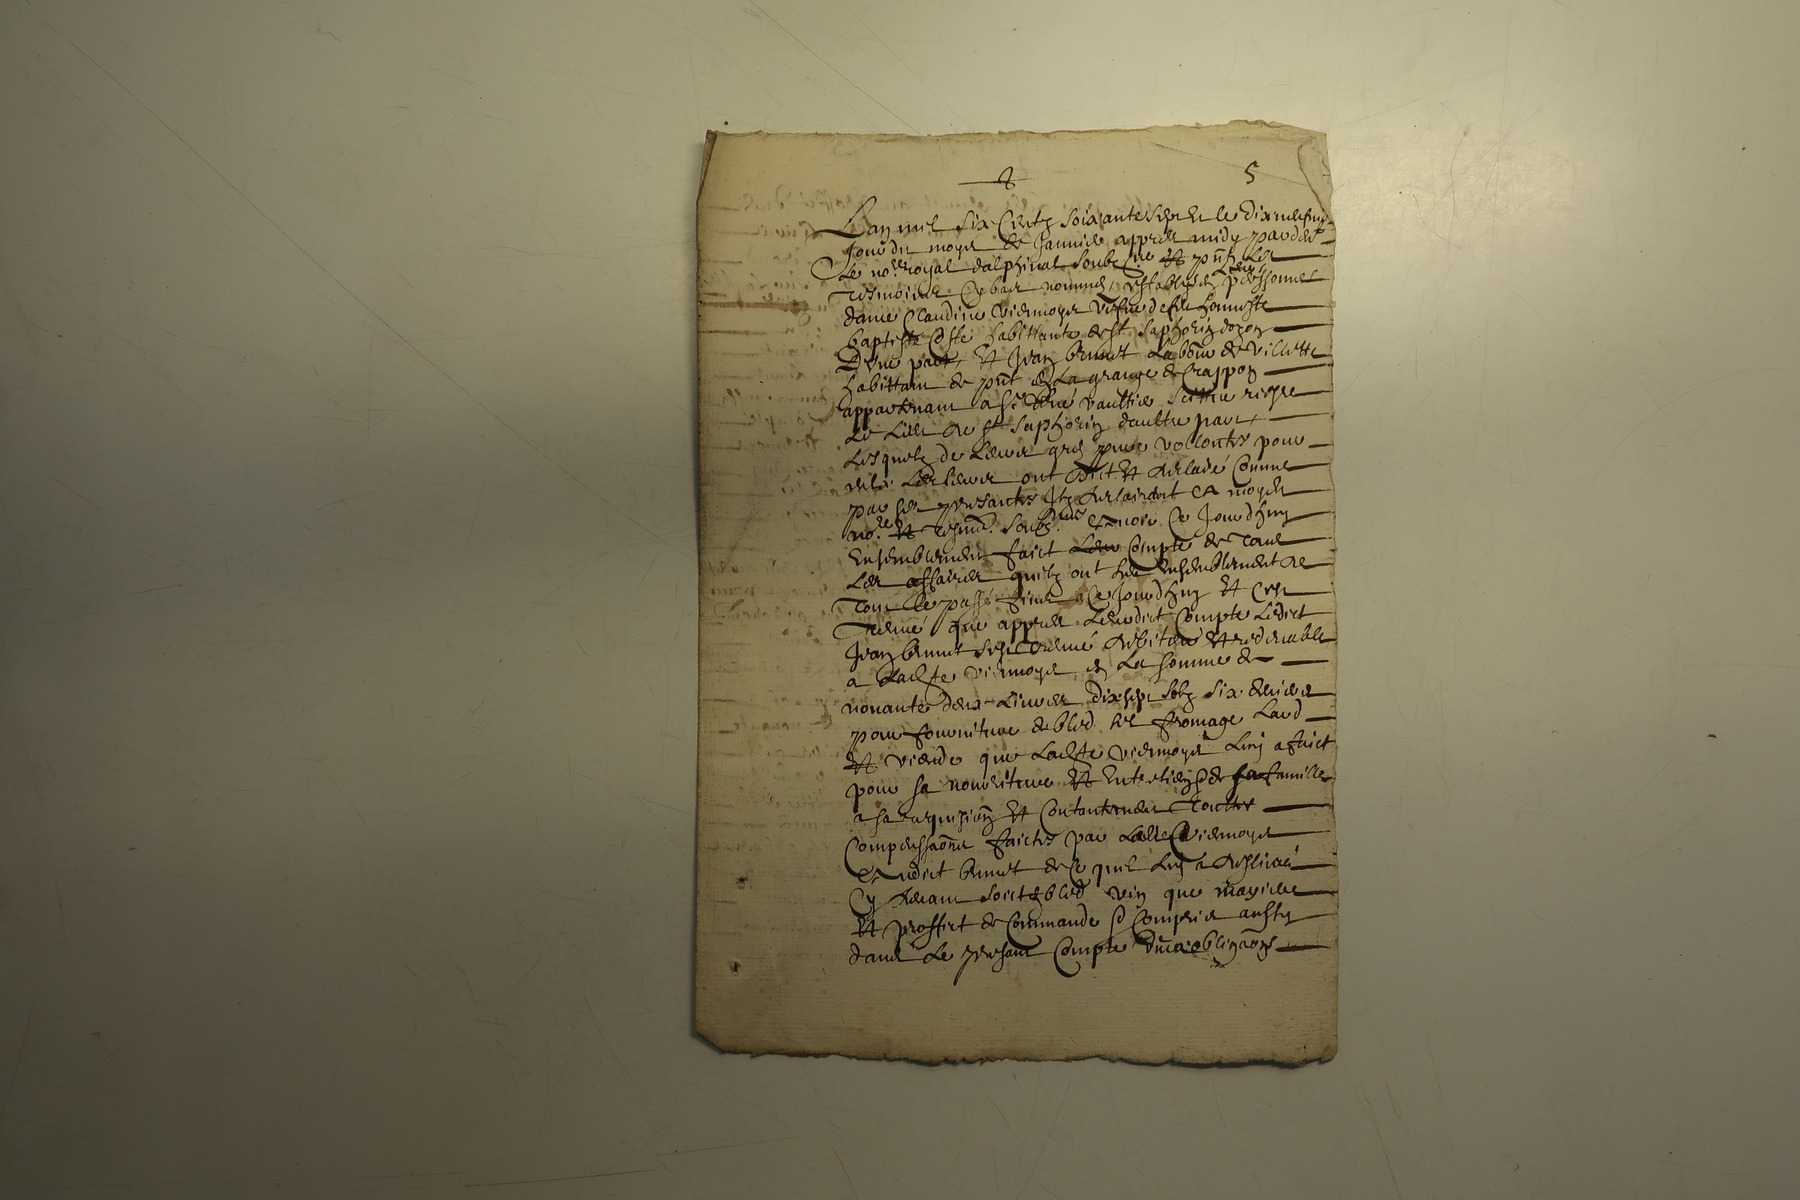 5
Lan mil six Centz soixante sept et le dixneufvie
Jour du moys de Janvier appres midy pardevt
le nore royal dalphinal soubzne et pntz les
tesmoings cy bas nommes, establys en leurs personnes
dame Claudine Viermoys vefve de feu honneste
baptiste Coste habittante de st saphorin dozon
Dune part, et Jean brunet labour de Villette
habittant de pnt en La grange de Crappon
appartenant a sr vaultier sittue riesre
le Lieu de st saphorin daultre part,
Lesquelz de Leurs gres pures vollontes pour
eulx Les leurs ont dict et desclairé Comme
par ses presantes Ilz desclairent a moyd
nore et tesmz soubznes avoir Ce Jourdhuy
Ensemblement faict Leur Compte de tous
Les affaires quilz ont heu ensemblement de
Tout le passé jusques a Ce Jourdhuy et Cest
treuvé que appres Leurdict Compte Ledict
Jean brunet sest treuvé debiteur et redevable
a Ladte viermoys en La somme de
nonante deux Livres dixsept solz six deniers
pour fourniture de bled sel fromage Lard
et viande que Ladte viermoys Luy a faict
pour sa nourriture et Entretien de sa famille
a sa requision et Contantement toutes
Compensaons faictes par Ladte Viermoys
audict brunet de Ce quil Luy a deslivré
Cy devant soict bled vin que
et proffict de Commande Compris aussy
dans Le presant Compte obligaons